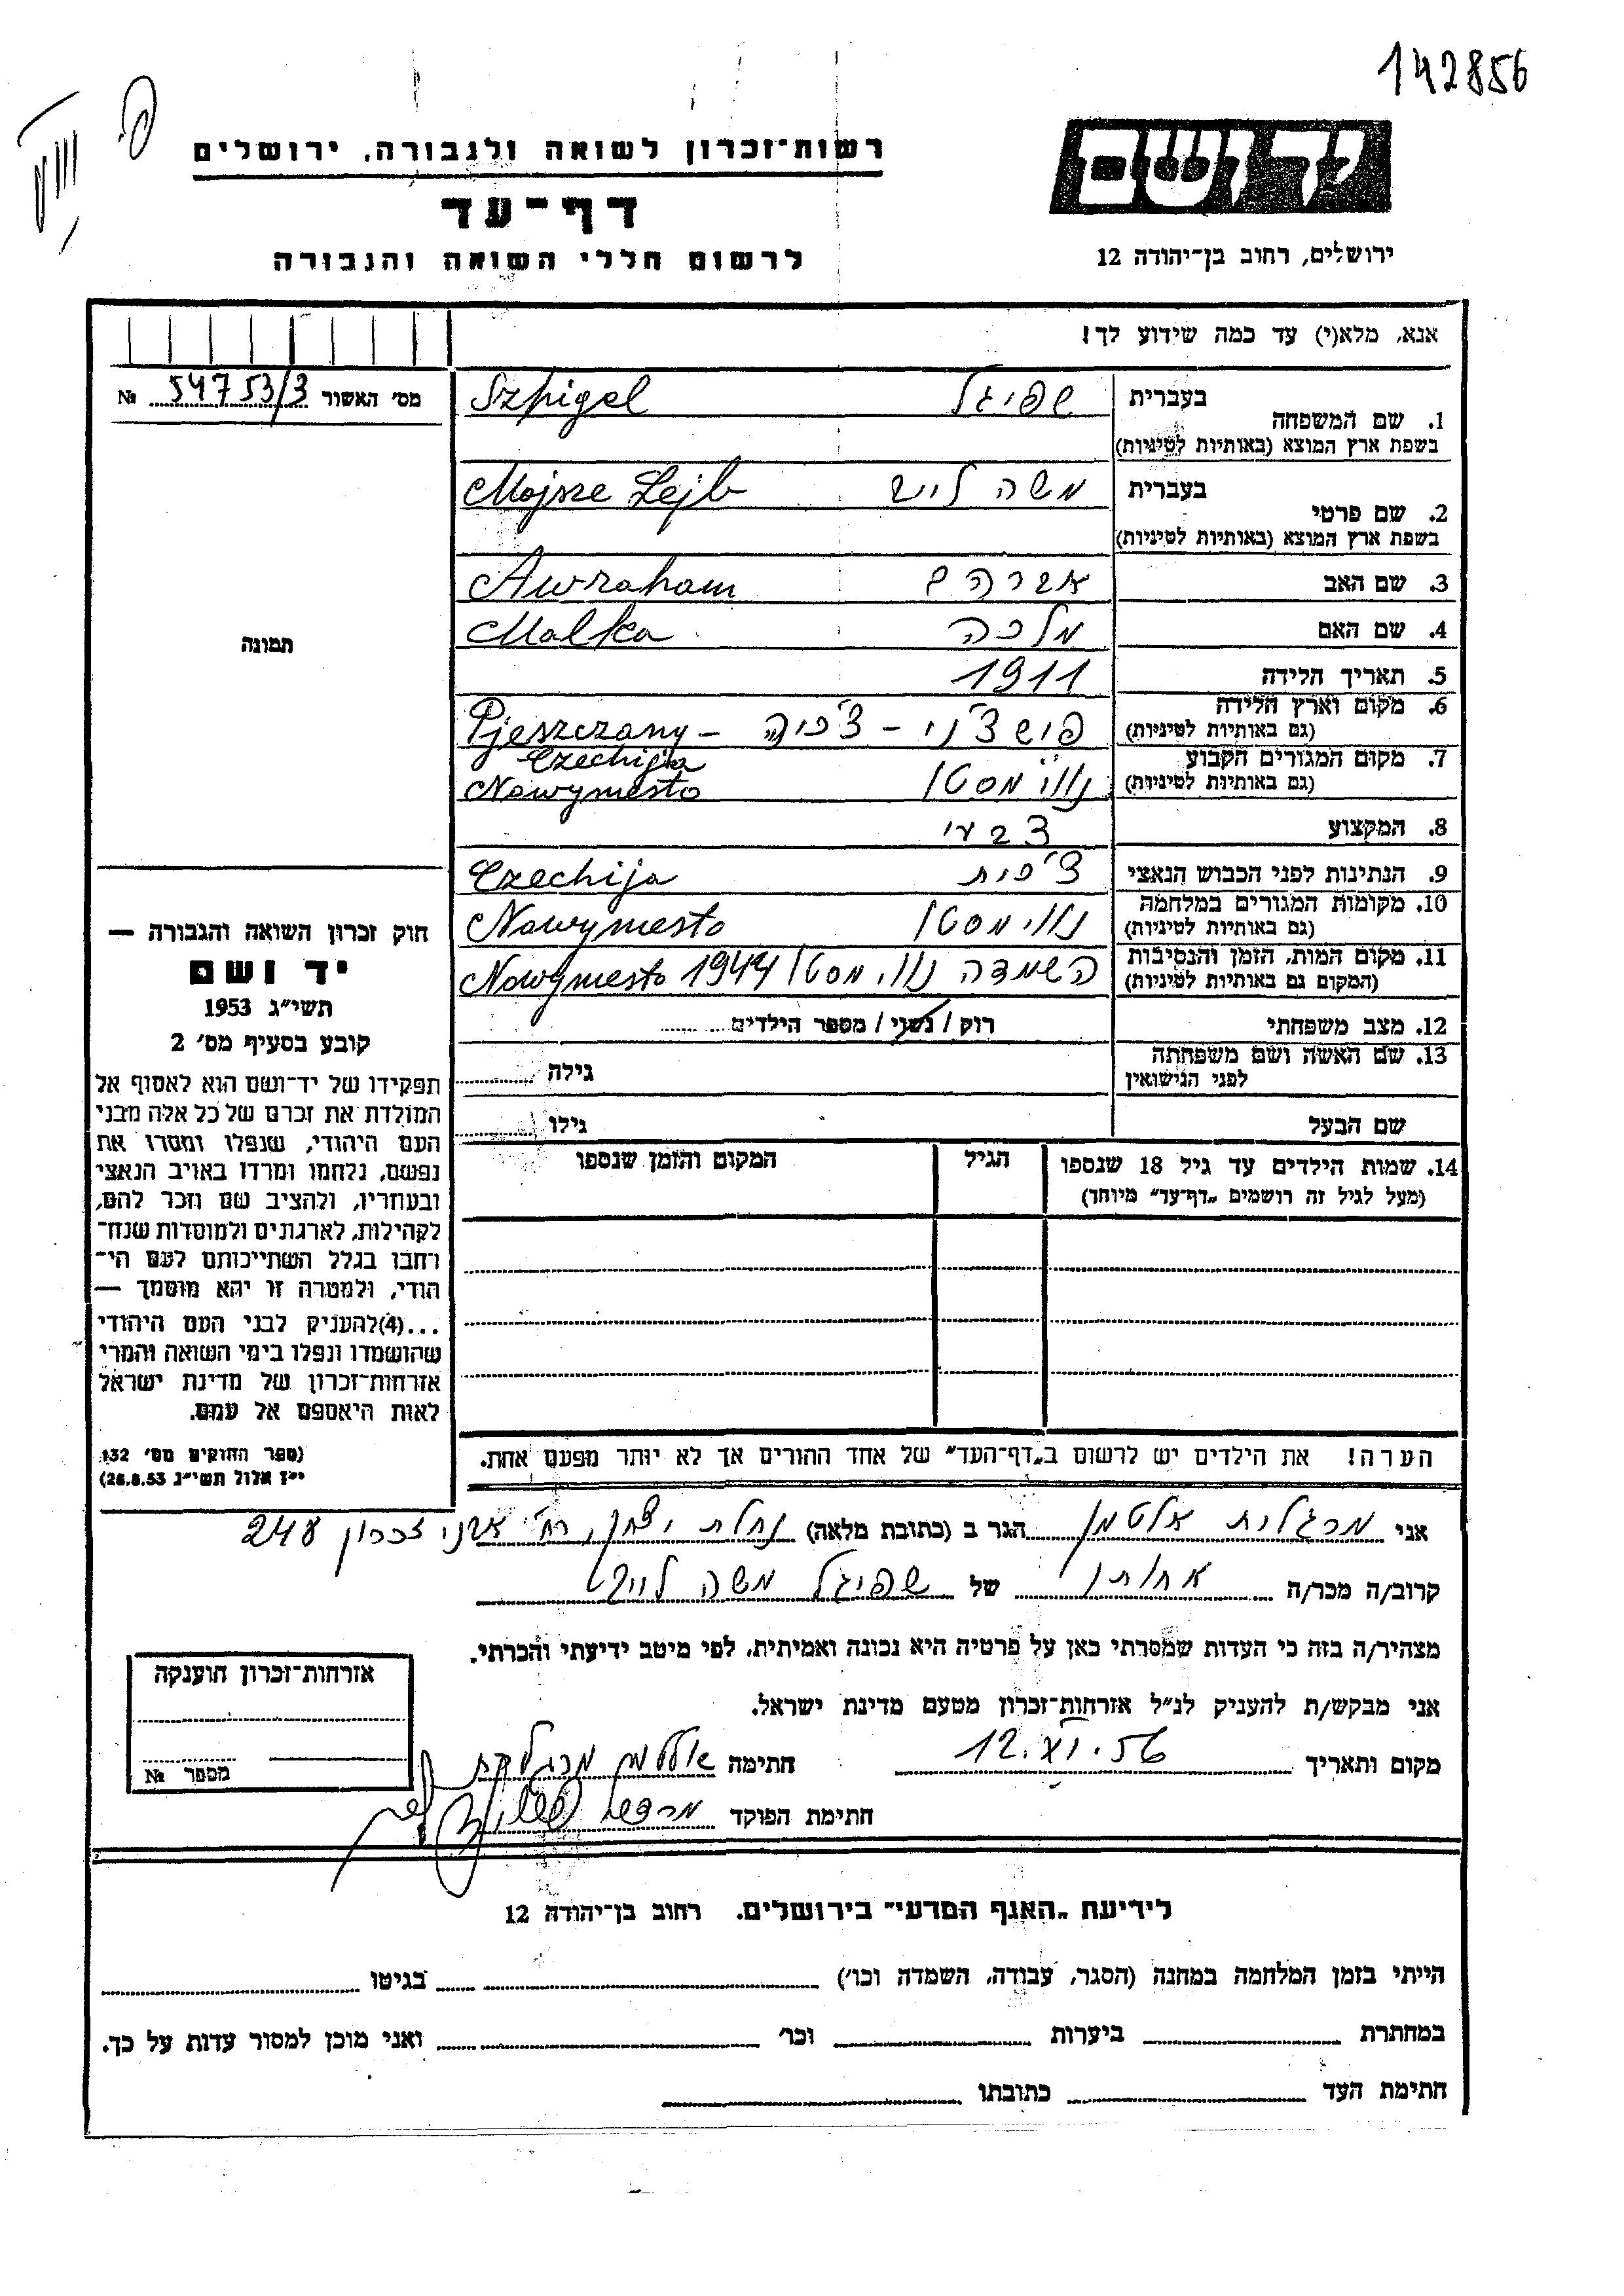 142856
יד ושם
רשות־זכרון לשואה ולגבורה, ירושלים
דף־עד
לרשום חללי השואה והגבורה
ירושלים, רחוב בן־יהודה 12
אנא, מלא(י) עד כמה שידוע לך!
מס׳ האשור 54753/3 №
תמונה
1. שם המשפחה בעברית שפיגל
בשפת ארץ המוצא (באותיות לטיניות) Szpigel
2. שם פרטי בעברית משה לייב
בשפת ארץ המוצא (באותיות לטיניות) Mojsze Lejb
3. שם האב אברהם Awraham
4. שם האם מלכה Malka
5. תאריך הלידה 1911
6. מקום וארץ הלידה פישצ׳ני - צ׳כיה Pjeszczany -
(גם באותיות לטיניות) Czechija
7. מקום המגורים הקבוע נווימסטו Nowymesto
(גם באותיות לטיניות)
8. המקצוע צבעי
9. הנתינות לפני הכבוש הנאצי צ׳כית Czechija
10. מקומות המגורים במלחמה נווימסטו Nowymesto
(גם באותיות לטיניות)
11. מקום המות, הזמן והנסיבות השמדה נווימסטו 1944 Nowymesto
(המקום גם באותיות לטיניות)
12. מצב משפחתי רוק / נשוי / מספר הילדים
13. שם האשה ושם משפחתה גילה
לפני הנישואין
שם הבעל גילו
14. שמות הילדים עד גיל 18 שנספו הגיל המקום והזמן שנספו
(מעל לגיל זה רושמים „דף־עד״ מיוחד)
הערה! את הילדים יש לרשום ב„דף־העד״ של אחד ההורים אך לא יותר מפעם אחת.
חוק זכרון השואה והגבורה —
יד ושם
תשי״ג 1953
קובע בסעיף מס׳ 2
תפקידו של יד־ושם הוא לאסוף אל
המולדת את זכרם של כל אלה מבני
העם היהודי, שנפלו ומסרו את
נפשם, נלחמו ומרדו באויב הנאצי
ובעוזריו, ולהציב שם וזכר להם,
לקהילות, לארגונים ולמוסדות שנח־
רבו בגלל השתייכותם לעם הי־
הודי, ולמטרה זו יהא מוסמך —
...(4)להעניק לבני העם היהודי
שהושמדו ונפלו בימי השואה והמרי
אזרחות־זכרון של מדינת ישראל
לאות היאספם אל עמם.
(ספר החוקים מס׳ 132
י״ז אלול תשי״ג 28.8.53)
אני מרגלית אלטמן הגר ב (כתובת מלאה) נחלת יצחק, רח׳ אבני זכרון 248
קרוב/ה מכר/ה אחותו של שפיגל משה לייב
מצהיר/ה בזה כי העדות שמסרתי כאן על פרטיה היא נכונה ואמיתית, לפי מיטב ידיעתי והכרתי.
אני מבקש/ת להעניק לנ״ל אזרחות־זכרון מטעם מדינת ישראל.
מקום ותאריך 12.VI.56 חתימה אלטמן מרגלית
חתימת הפוקד
אזרחות־זכרון הוענקה
מספר №
לידיעת „האגף המדעי״ בירושלים. רחוב בן־יהודה 12
הייתי בזמן המלחמה במחנה (הסגר, עבודה, השמדה וכו׳) בגיטו
במחתרת ביערות וכו׳ ואני מוכן למסור עדות על כך.
חתימת העד כתובתו